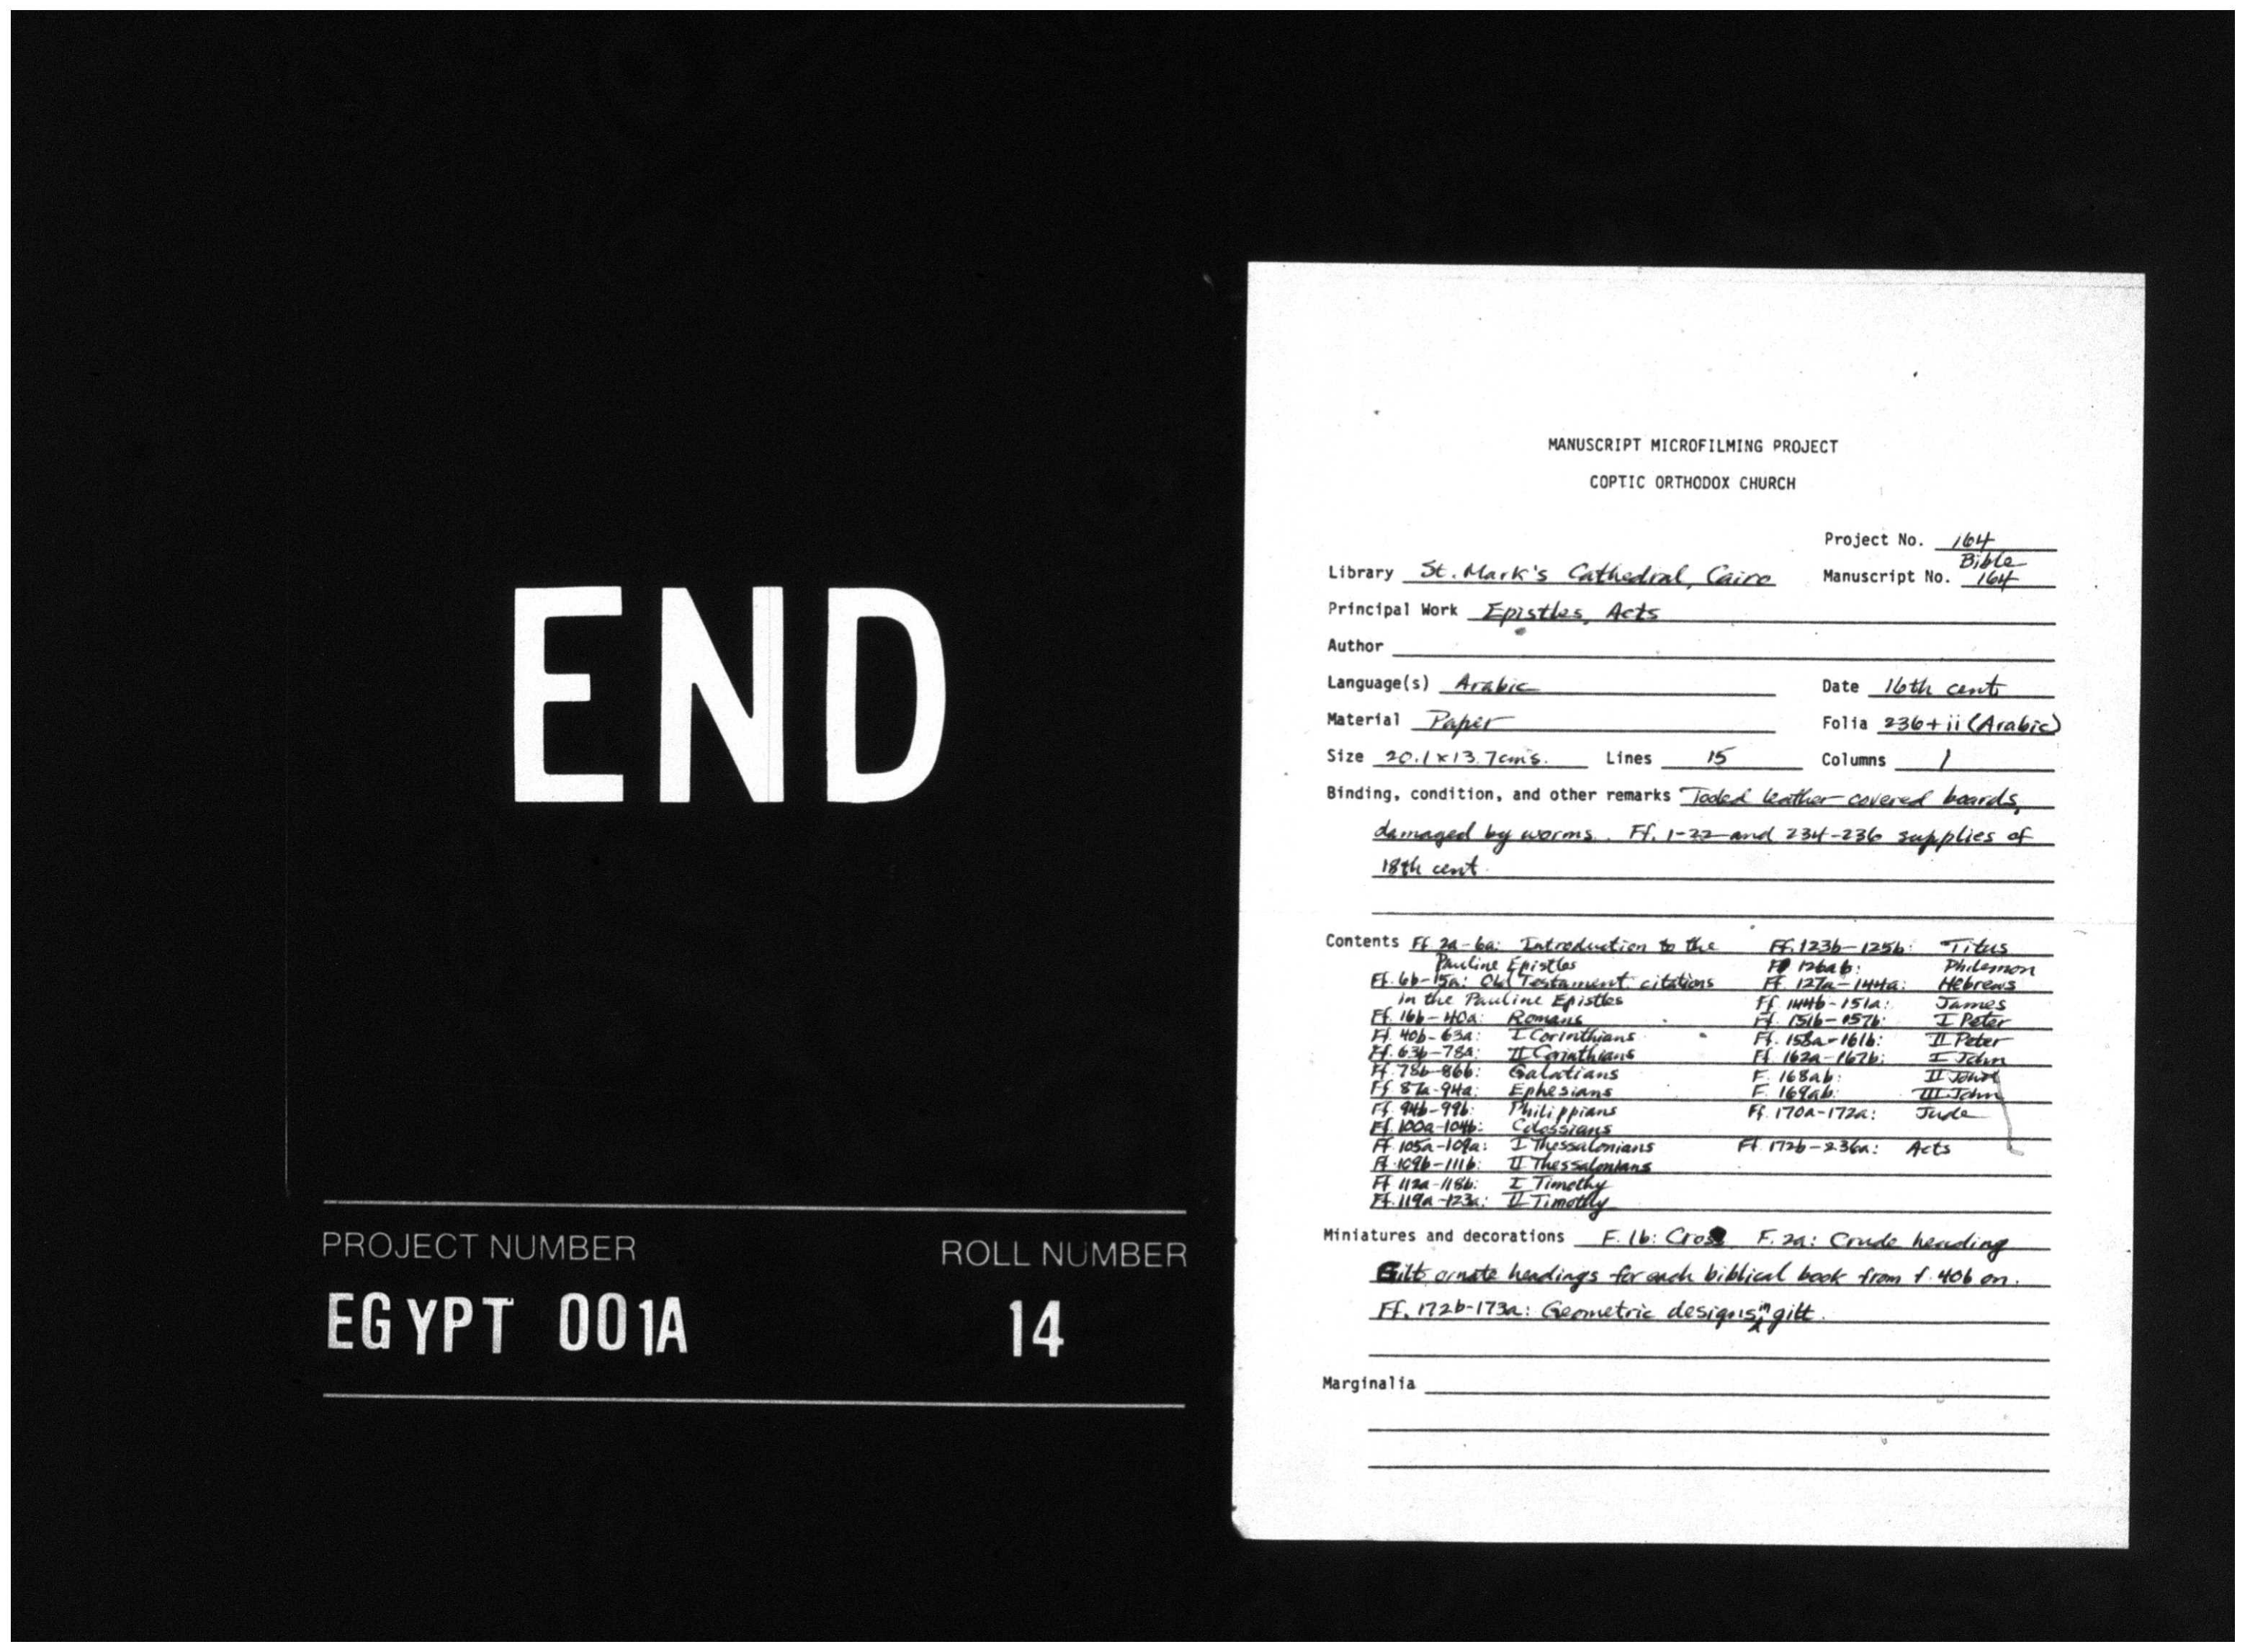 END
PROJECT NUMBER ROLL NUMBER
EGYPT 001A 14
MANUSCRIPT MICROFILMING PROJECT
COPTIC ORTHODOX CHURCH
Project No. 164
Library St. Mark's Cathedral, Cairo Manuscript No. Bible 164
Principal Work Epistles, Acts
Author
Language(s) Arabic Date 16th cent.
Material Paper Folia 236 + ii (Arabic)
Size 20.1 x 13.7 cms. Lines 15 Columns 1
Binding, condition, and other remarks Tooled leather-covered boards,
damaged by worms. Ff. 1-22 and 234-236 supplies of
18th cent.
Contents Ff. 2a-6a: Introduction to the
Pauline Epistles
Ff. 6b-15a: Old Testament citations
in the Pauline Epistles
Ff. 16b-40a: Romans
Ff. 40b-63a: I Corinthians
Ff. 63b-78a: II Corinthians
Ff. 78b-86b: Galatians
Ff. 87a-94a: Ephesians
Ff. 94b-99b: Philippians
Ff. 100a-104b: Colossians
Ff. 105a-109a: I Thessalonians
Ff. 109b-111b: II Thessalonians
Ff. 112a-118b: I Timothy
Ff. 119a-123a: II Timothy
Ff. 123b-125b: Titus
F. 126ab: Philemon
Ff. 127a-144a: Hebrews
Ff. 144b-151a: James
Ff. 151b-157b: I Peter
Ff. 158a-161b: II Peter
Ff. 162a-167b: I John
F. 168ab: II John
F. 169ab: III John
Ff. 170a-172a: Jude
Ff. 172b-236a: Acts
Miniatures and decorations F. 1b: Cross F. 2a: Crude heading
Gilt ornate headings for each biblical book from f. 40b on.
Ff. 172b-173a: Geometric designs in gilt.
Marginalia